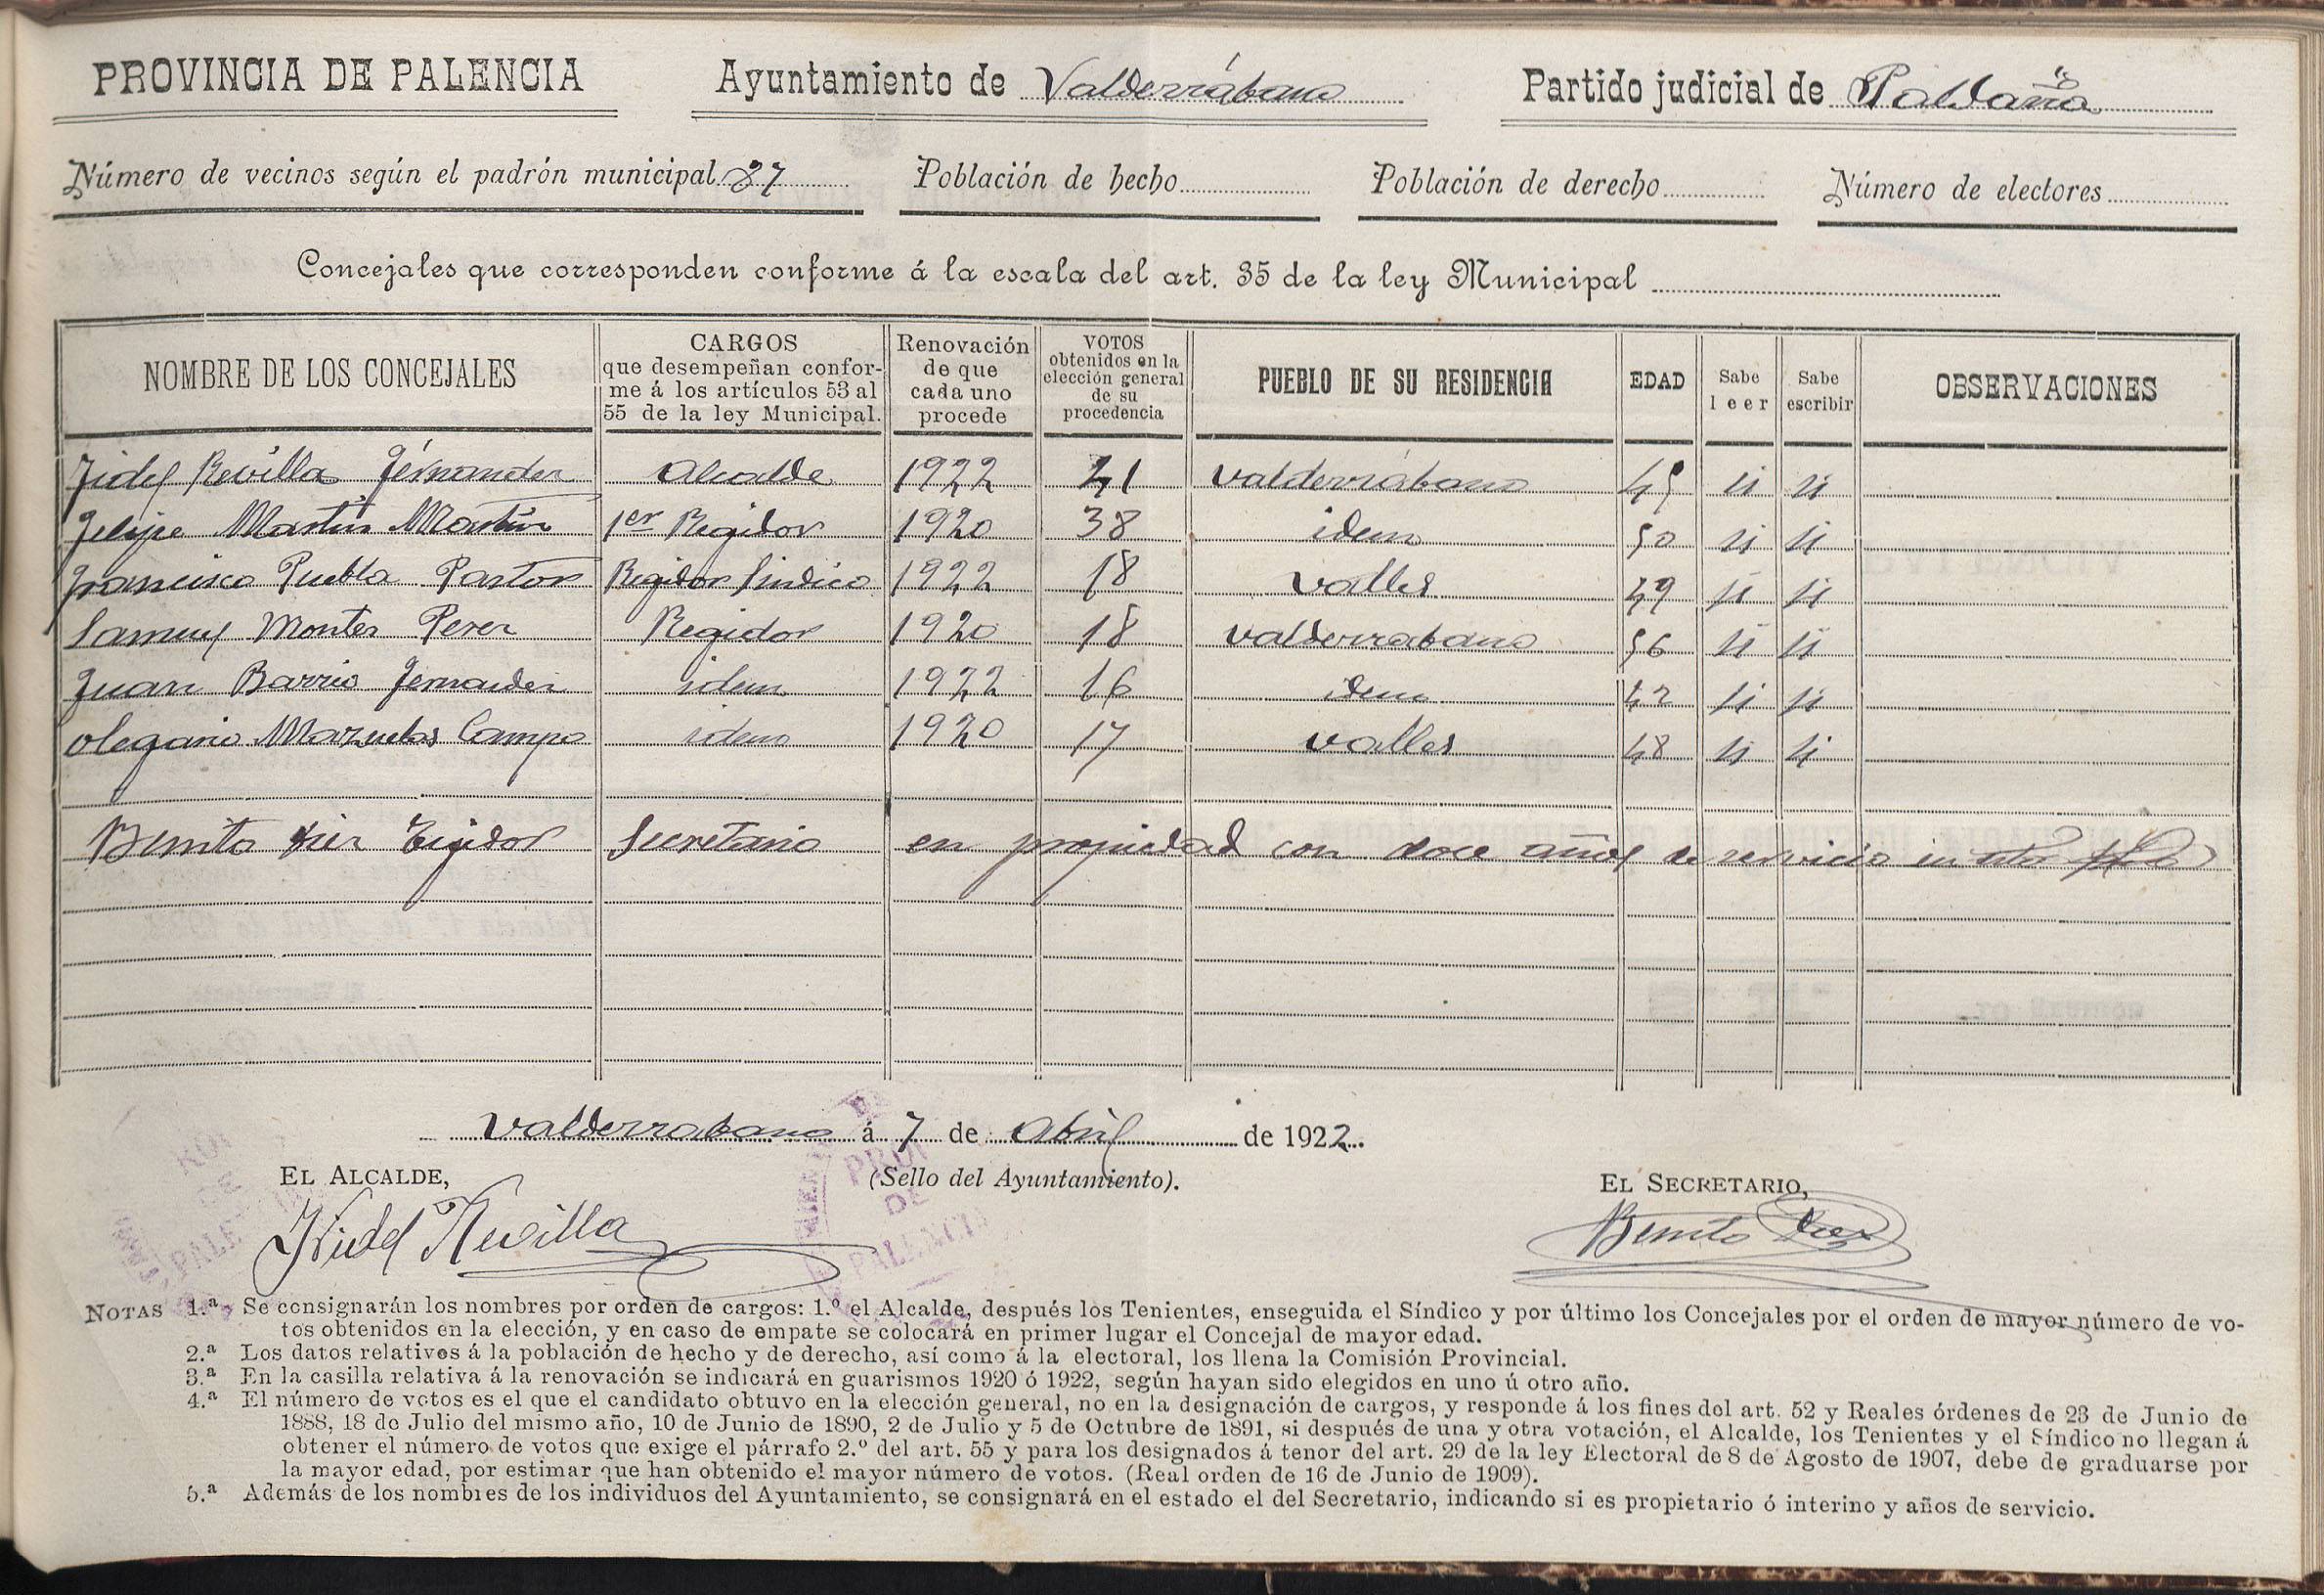 PROVINCIA DE PALENCIA Ayuntamiento de Valderrábano Partido judicial de Saldaña
Número de vecinos según el padrón municipal 87 Población de hecho Población de derecho Número de electores
Concejales que corresponden conforme á la escala del art. 35 de la ley Municipal
NOMBRE DE LOS CONCEJALES
CARGOS
que desempeñan confor-
me á los artículos 53 al
55 de la ley Municipal.
Renovación
de que
cada uno
procede
VOTOS
obtenidos en la
elección general
de su
procedencia
PUEBLO DE SU RESIDENCIA
EDAD
Sabe
leer
Sabe
escribir
OBSERVACIONES
Fidel Revilla Fernandez Alcalde 1922 21 Valderrábano 45 si si
Felipe Martin Martin 1er Regidor 1920 38 idem 50 si si
Francisco Puebla Pastor Regidor Sindico 1922 18 Valles 49 si si
Samuel Montes Perez Regidor 1920 18 Valderrabano 56 si si
Juan Barrio Fernandez idem 1922 16 idem 42 si si
Olegario Mazuelas Campo idem 1920 17 Valles 48 si si
Benito Diez Tejedor Secretario en propiedad con doce años de servicio en
Valderrabano á 7 de Abril de 1922.
EL ALCALDE, (Sello del Ayuntamiento). EL SECRETARIO,
Fidel Revilla Benito Diez
PROV
DE
PALENCIA
NOTAS 1.ª Se consignarán los nombres por orden de cargos: 1.º el Alcalde, después los Tenientes, enseguida el Síndico y por último los Concejales por el orden de mayor número de vo-
tos obtenidos en la elección, y en caso de empate se colocará en primer lugar el Concejal de mayor edad.
2.ª Los datos relativos á la población de hecho y de derecho, así como á la electoral, los llena la Comisión Provincial.
3.ª En la casilla relativa á la renovación se indicará en guarismos 1920 ó 1922, según hayan sido elegidos en uno ú otro año.
4.ª El número de votos es el que el candidato obtuvo en la elección general, no en la designación de cargos, y responde á los fines del art. 52 y Reales órdenes de 23 de Junio de
1888, 18 de Julio del mismo año, 10 de Junio de 1890, 2 de Julio y 5 de Octubre de 1891, si después de una y otra votación, el Alcalde, los Tenientes y el Síndico no llegan á
obtener el número de votos que exige el párrafo 2.º del art. 55 y para los designados á tenor del art. 29 de la ley Electoral de 8 de Agosto de 1907, debe de graduarse por
la mayor edad, por estimar que han obtenido el mayor número de votos. (Real orden de 16 de Junio de 1909).
5.ª Además de los nombres de los individuos del Ayuntamiento, se consignará en el estado el del Secretario, indicando si es propietario ó interino y años de servicio.